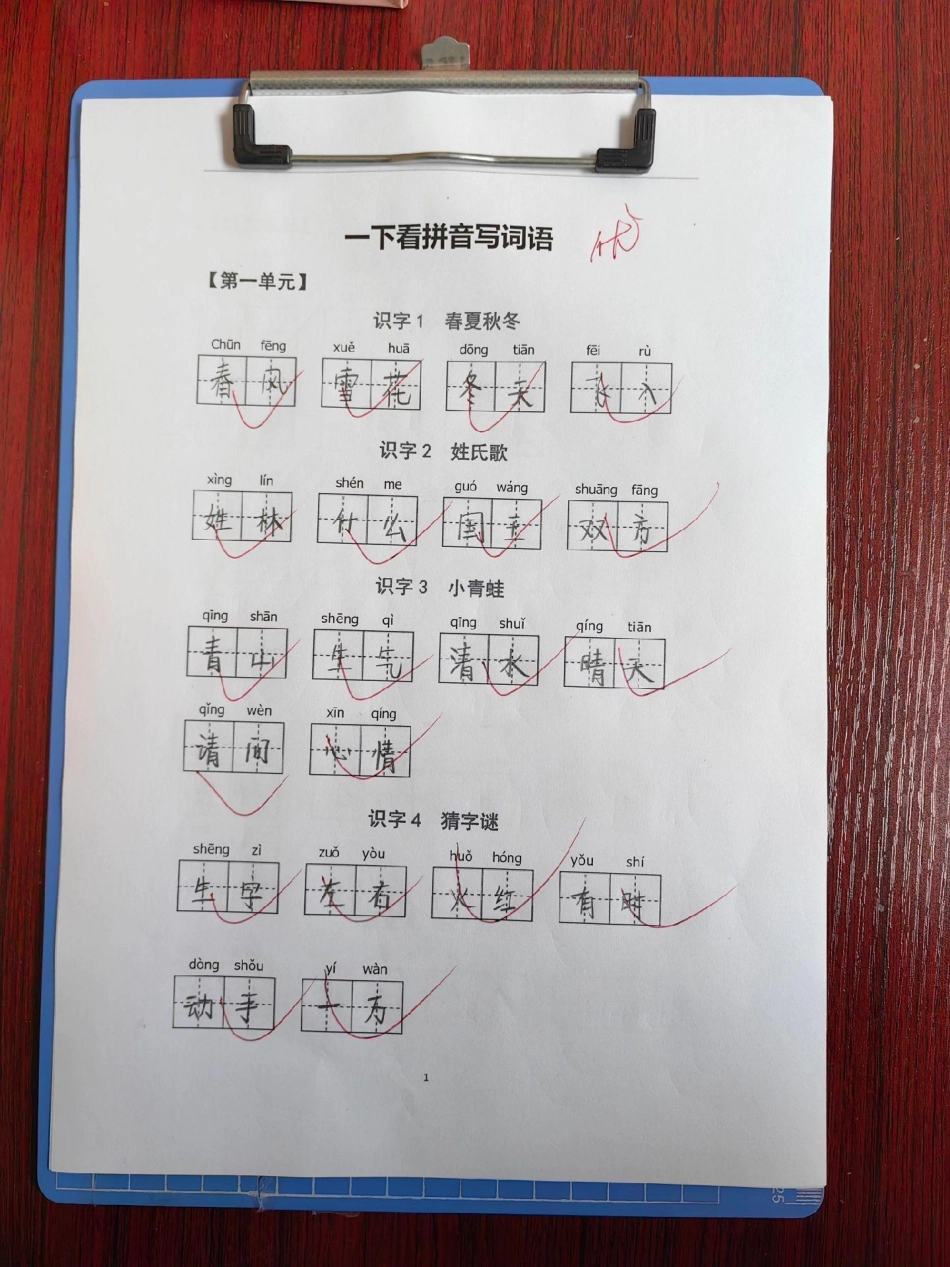 一下看拼音写词语 优
【第一单元】
识字1 春夏秋冬
Chūn fēng xuě huā dōng tiān fēi rù
春风 雪花 冬天 飞入
识字2 姓氏歌
xìng lín shén me guó wáng shuāng fāng
姓林 什么 国王 双方
识字3 小青蛙
qīng shān shēng qì qīng shuǐ qíng tiān
青山 生气 清水 晴天
qǐng wèn xīn qíng
请问 心情
识字4 猜字谜
shēng zì zuǒ yòu huǒ hóng yǒu shí
生字 左右 火红 有时
dòng shǒu yí wàn
动手 一万
1
25